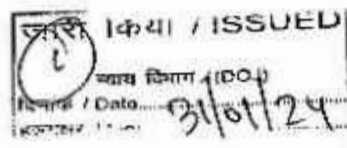 जारी किया / ISSUED
न्याय विभाग (DOJ)
दिनांक / Date........ 31/01/24